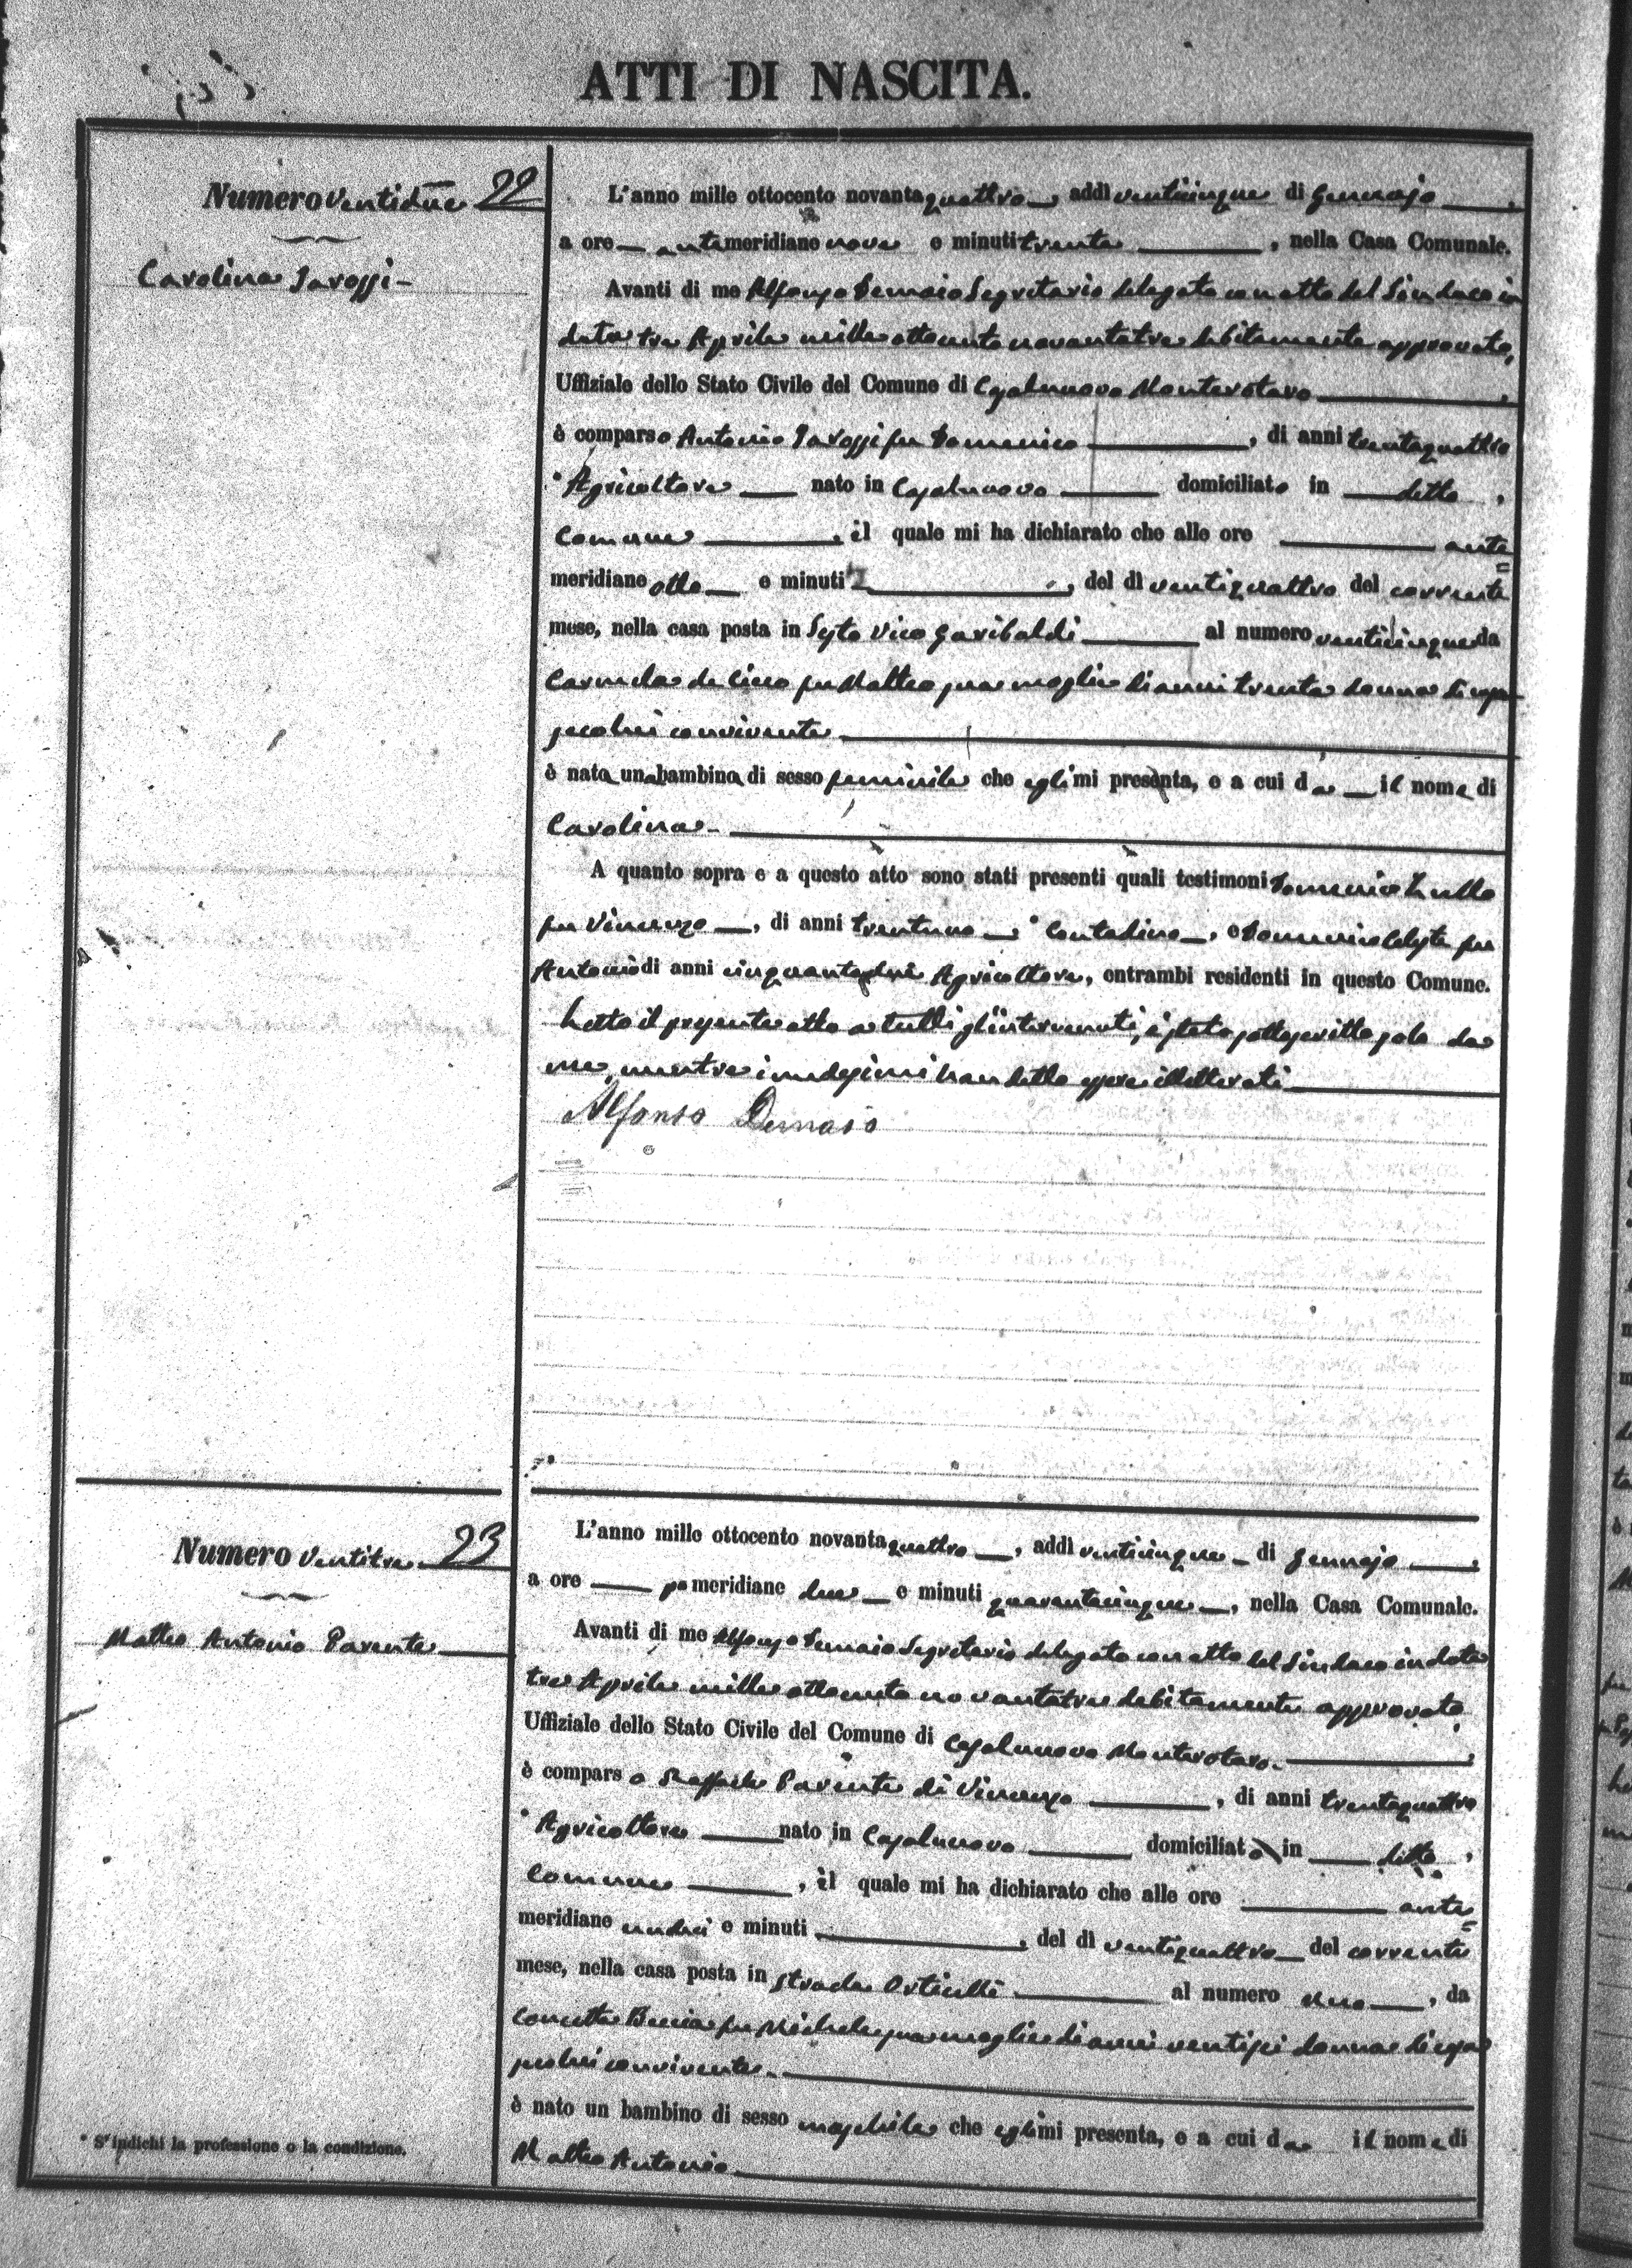 ATTI DI NASCITA.
Numero Ventidue 22
Carolina Iarossi -
L'anno mille ottocento novantaquattro, addì venticinque di Gennajo,
a ore antemeridiane nove e minuti trenta, nella Casa Comunale.
Avanti di me Alfonso Demaio Segretario delegato con atto del Sindaco in
data tre Aprile mille ottocento novantatre debitamente approvato,
Uffiziale dello Stato Civile del Comune di Casalnuovo Monterotaro,
è comparso Antonio Iarossi fu Domenico, di anni trentaquattro
* Agricoltore nato in Casalnuovo domiciliato in detto,
Comune, il quale mi ha dichiarato che alle ore ante=
meridiane otto e minuti, del dì ventiquattro del corrente
mese, nella casa posta in Sesto Vico Garibaldi al numero venticinque da
Carmela de Cicco fu Matteo sua moglie di anni trenta donna di casa
seco lui convivente
è nata una bambina di sesso feminile che egli mi presenta, e a cui da il nome di
Carolina -
A quanto sopra e a questo atto sono stati presenti quali testimoni Domenico Zullo
fu Vincenzo, di anni trentuno, * Contadino, e Domenico Celeste fu
Antonio di anni cinquantadue Agricoltore, entrambi residenti in questo Comune.
Letto il presente atto a tutti gl'intervenuti, è stato sottoscritto solo da
me, mentre i medesimi han detto essere illetterati
Alfonso Demaio
Numero Ventitre 23
Matteo Antonio Parente
L'anno mille ottocento novantaquattro, addì venticinque di Gennajo,
a ore pomeridiane due e minuti quarantacinque, nella Casa Comunale.
Avanti di me Alfonso Demaio Segretario delegato con atto del Sindaco in data
tre Aprile mille ottocento novantatre debitamente approvato,
Uffiziale dello Stato Civile del Comune di Casalnuovo Monterotaro.,
è comparso Raffaele Parente di Vincenzo, di anni trentaquattro
* Agricoltore nato in Casalnuovo domiciliato in detto,
Comune, il quale mi ha dichiarato che alle ore ante=
meridiane undici e minuti, del dì ventiquattro del corrente
mese, nella casa posta in strada al numero uno, da
Concetta fu Michele sua moglie di anni ventisei donna di casa
seco lui convivente.
è nato un bambino di sesso maschile che egli mi presenta, e a cui da il nome di
Matteo Antonio
* S'indichi la professione o la condizione.